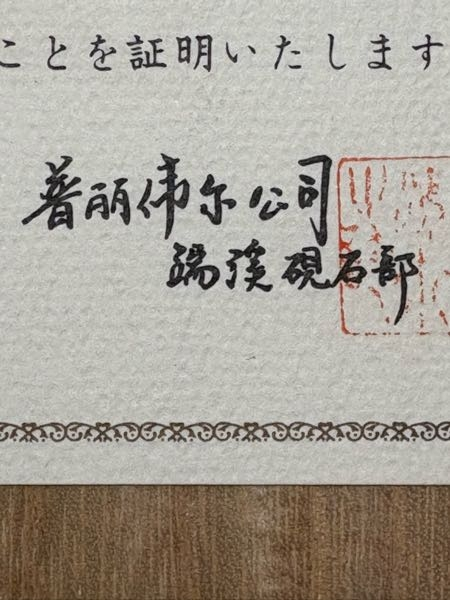 ことを証明いたします
普丽伟尔公司
端溪硯石部